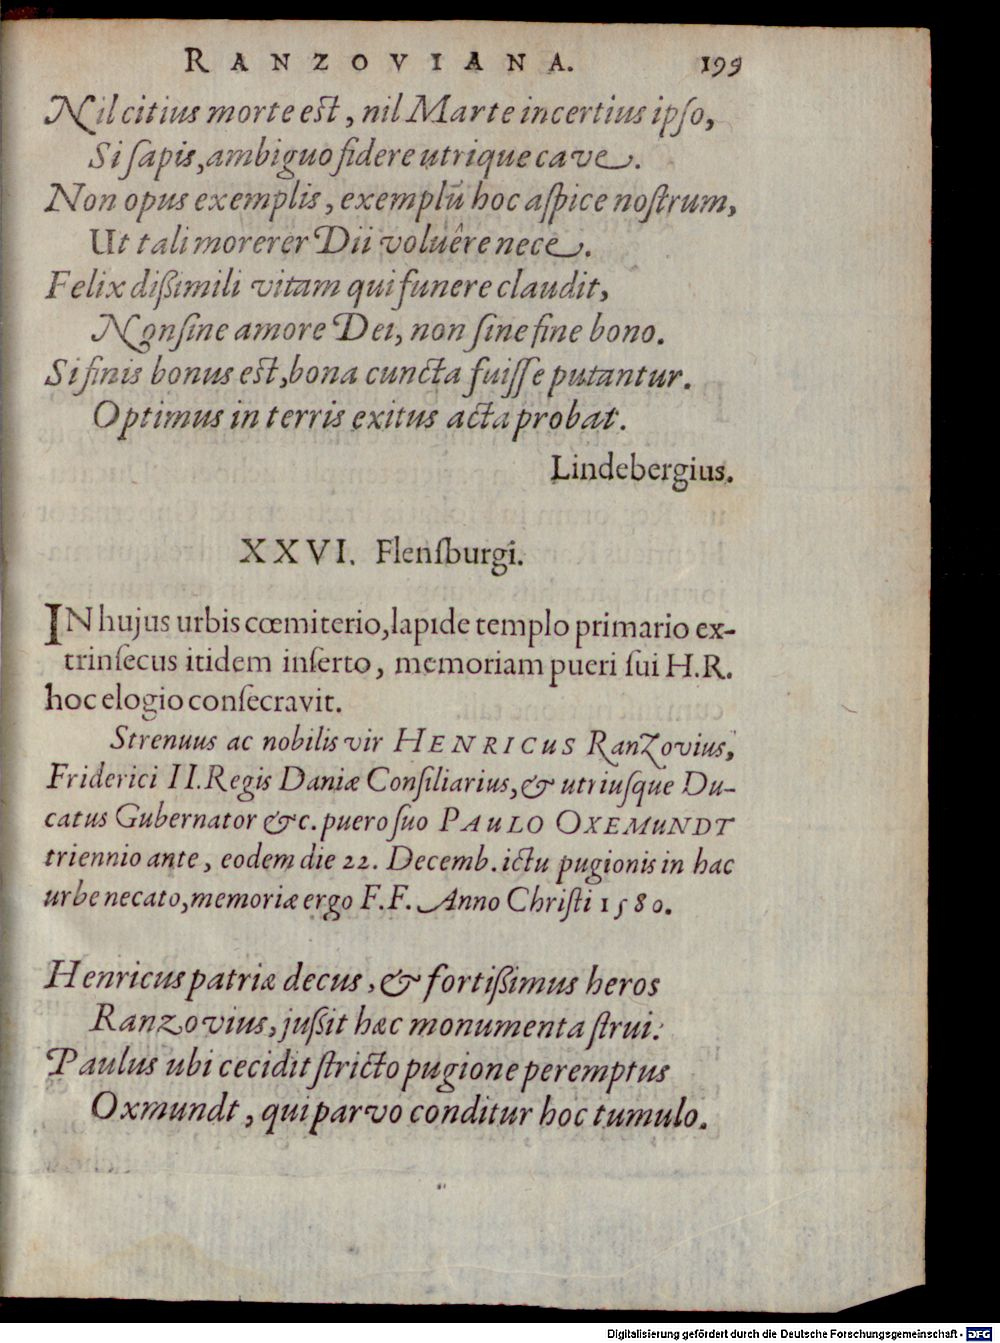 RANZOVIANA. 199
Nil citius morte est, nil Marte incertius ipſo,
Si ſapis, ambiguo fidere utrique cave.
Non opus exemplis, exemplū hoc aſpice noſtrum,
Ut tali morerer Dii voluêre nece.
Felix dißimili vitam qui funere claudit,
Non ſine amore Dei, non ſine fine bono.
Si finis bonus est, bona cuncta fuiſſe putantur.
Optimus in terris exitus acta probat.
Lindebergius.
XXVI. Flenſburgi.
IN hujus urbis cœmiterio, lapide templo primario ex-
trinſecus itidem inſerto, memoriam pueri ſui H.R.
hoc elogio conſecravit.
Strenuus ac nobilis vir HENRICUS RanZovius,
Friderici II. Regis Daniæ Conſiliarius, & utriuſque Du-
catus Gubernator &c. puero ſuo PAULO OXEMUNDT
triennio ante, eodem die 22. Decemb. ictu pugionis in hac
urbe necato, memoriæ ergo F.F. Anno Chriſti 1580.
Henricus patriæ decus, & fortißimus heros
Ranzovius, jußit hæc monumenta ſtrui:
Paulus ubi cecidit ſtricto pugione peremptus
Oxmundt, qui parvo conditur hoc tumulo.
Digitalisierung gefördert durch die Deutsche Forschungsgemeinschaft - DFG